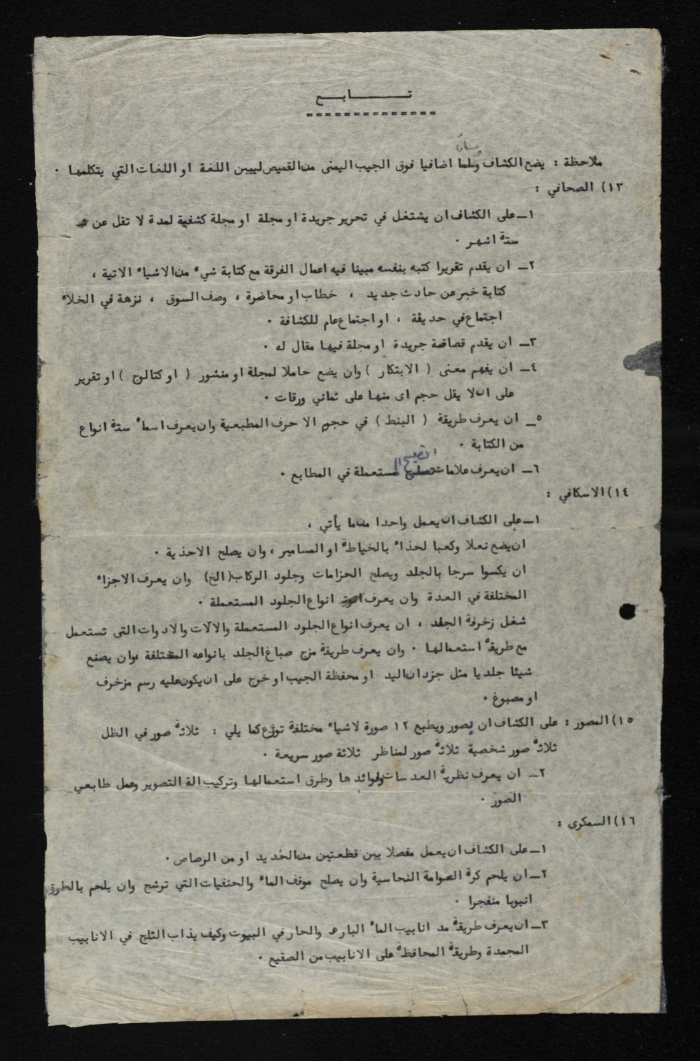 تـــابـــع
وساما
ملاحظة : يضع الكشاف وسلما اضافيا فوق الجيب اليمنى من القميص ليبين اللغة او اللغات التي يتكلمها .
١٣) الصحافي :
١ـ على الكشاف ان يشتغل في تحرير جريدة او مجلة او مجلة كشفية لمدة لا تقل عن
ستة اشهر .
٢ـ ان يقدم تقريرا كتبه بنفسه مبينا فيه اعمال الفرقة مع كتابة شيء من الاشياء الاتية ،
كتابة خبر عن حادث جديد ، خطاب او محاضرة ، وصف السوق ، نزهة في الخلاء
اجتماع في حديقة ، او اجتماع عام للكشافة .
٣ـ ان يقدم قصاصة جريدة او مجلة فيها مقال له .
٤ـ ان يفهم معنى ( الابتكار ) وان يضع حاملا لمجلة او منشور ( او كتالوج ) او تقرير
على ان لا يقل حجم اى منها على ثماني ورقات .
٥ـ ان يعرف طريقة ( البنط ) في حجم الاحرف المطبعية وان يعرف اسماء ستة انواع
من الكتابة .
٦ـ ان يعرف علامات التصحيح المستعملة في المطابع .
١٤) الاسكافي :
١ـ على الكشاف ان يعمل واحدا مما يأتي ،
ان يضع نعلا وكعبا لحذاء بالخياطة او المسامير ، وان يصلح الاحذية .
ان يكسوا سرجا بالجلد ويصلح الحزامات وجلود الركاب (الخ) وان يعرف الاجزاء
المختلفة في العدة وان يعرف انواع الجلود المستعملة .
شغل زخرفة الجلد ، ان يعرف انواع الجلود المستعملة والآلات والادوات التى تستعمل
مع طريقة استعمالها . وان يعرف طريقة مزج صباغ الجلد بانواعه المختلفة ،وان يصنع
شيئا جلديا مثل جزدان اليد او محفظة الجيب او خرج على ان يكون عليه رسم مزخرف
او مصبوغ .
١٥) المصور : على الكشاف ان يصور ويطبع ١٢ صورة لاشياء مختلفة توزع كما يلي : ثلاثة صور في الظل
ثلاثة صور شخصية ثلاثة صور لمناظر ثلاثة صور سريعة .
٢ـ ان يعرف نظرية العدسات وفوائدها وطرق استعمالها وتركيب الة التصوير وعمل طابعي
الصور .
١٦) السمكرى :
١ـ على الكشاف ان يعمل مفصلا بين قطعتين من الحديد او من الرصاص .
٢ـ ان يلحم كرة العوامة النحاسية وان يصلح موقف الماء والحنفيات التي ترشح وان يلحم بالطرق
انبوبا منفجرا .
٣ـ ان يعرف طريقة مد انابيب الماء البارد والحار في البيوت وكيف يذاب الثلج في الانابيب
المجمدة وطريقة المحافظة على الانابيب من الصقيع .